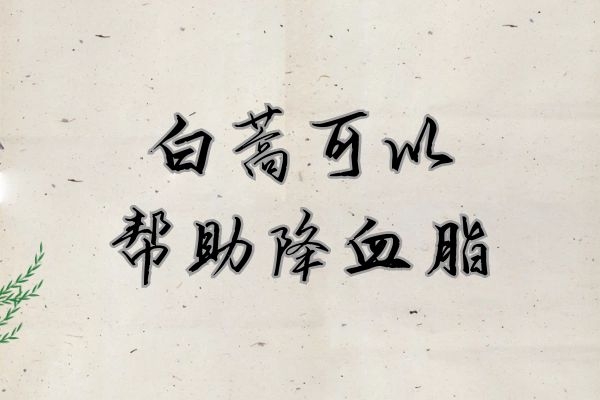 白蒿可以
帮助降血脂